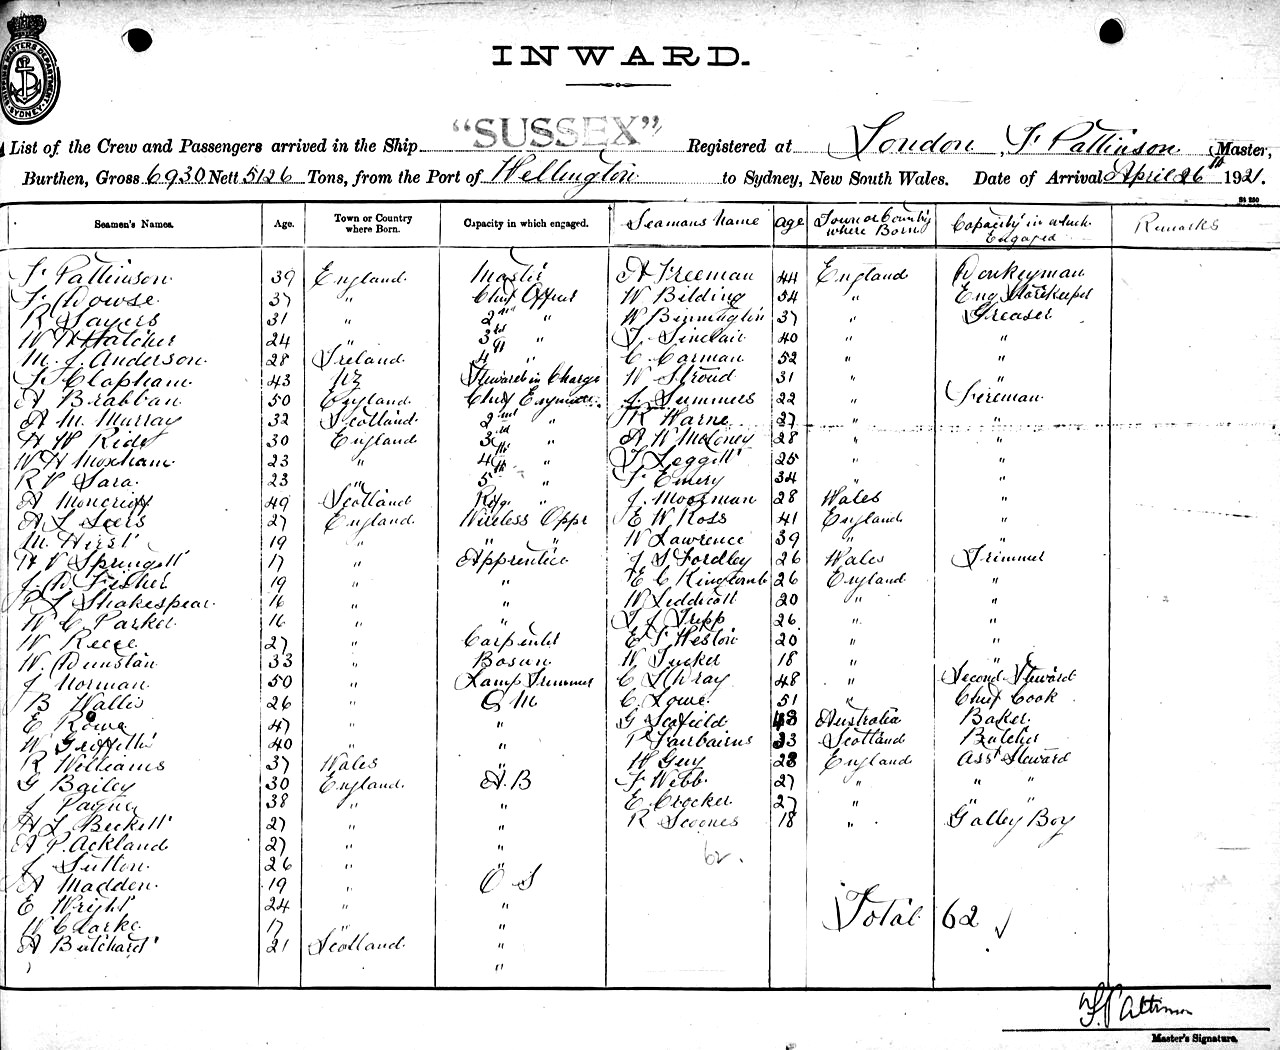 SHIPPING MASTERS DEPARTMENT SYDNEY
INWARD.
List of the Crew and Passengers arrived in the Ship "SUSSEX" Registered at London, F Pattinson Master,
Burthen, Gross 6930 Nett 5126 Tons, from the Port of Wellington to Sydney, New South Wales. Date of Arrival April 26th 1921.
Seamen's Names. Age. Town or Country where Born. Capacity in which engaged. Seamans Name Age Town or County where Born Capacity in which Engaged Remarks
F Pattinson 39 England Master A Freeman 44 England Donkeyman
F Dowse 37 " Chief Officer W Bilding 54 " Eng Storekeeper
R Sayers 31 " 2nd " W Binnington 37 " Greaser
W H Hatcher 24 " 3rd " T Sinclair 40 " "
M. J. Anderson 28 Ireland 4th " C Carman 52 " "
F Clapham 43 NZ Steward in Charge W Stroud 31 " "
A Brabban 50 England Chief Engineer J Summers 22 " Fireman
A M Murray 32 Scotland 2nd " R Warne 27 " "
H W Ride 30 England 3rd " A W Moloney 28 " "
W H Moxham 23 " 4th " T Leggett 25 " "
R V Sara 23 " 5th " F Emery 34 " "
A Moncrieff 49 Scotland Rfg " J Moorman 28 Wales "
A L Seers 27 England Wireless Oppr E W Ross 41 England "
M. Hirst 19 " " " W Lawrence 39 " "
H V Springett 17 " Apprentice J S Fordley 26 Wales Trimmer
J. W Fisher 19 " " E C Kingcomb 26 England "
P L Shakespear 16 " " W Liddicott 20 " "
W C Parker 16 " " T J Tripp 26 " "
W Reece 27 " Carpenter E T Weston 20 " "
W. Dunstan 33 " Bosun W Tucker 18 " "
J Norman 50 " Lamp Trimmer C S Wray 48 " Second Steward
B Wallis 26 " Q M C. Lowe 51 " Chief Cook
E Rowe 47 " " G Scofield 48 Australia Baker
W Griffiths 40 " " P Fairbairns 33 Scotland Butcher
R Williams 37 Wales " W Guy 28 England Asst Steward
G Bailey 30 England A B F Webb 27 " " "
J Payne 38 " " E. Crocker 27 " " "
H L Beckett 27 " " R Scoones 18 " Galley Boy
A P. Ackland 27 " "
J Sutton 26 " "
A Madden 19 " O S
E Wright 24 " "
W Clarke 17 " "
A Butchard 21 Scotland "
"
62.
Total 62
F. Pattinson
Master's Signature.